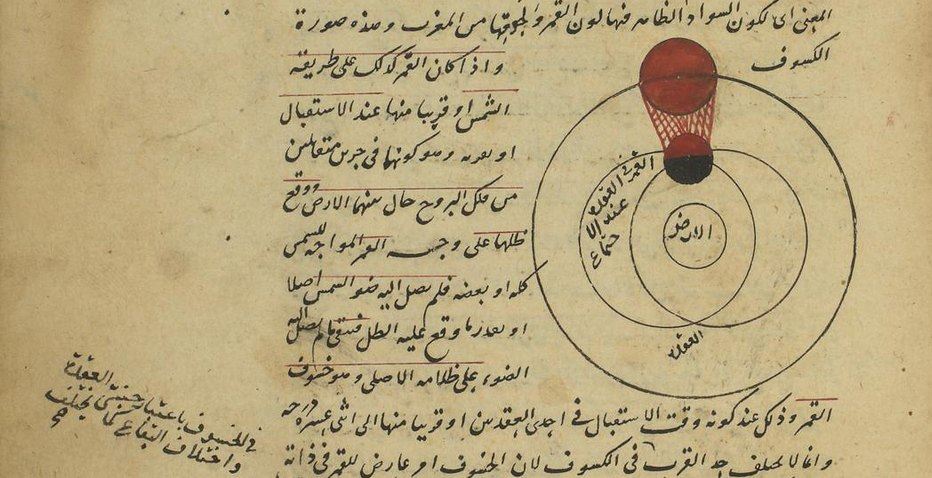 المعنى اى لكون السواد الظاهر فيها لون القمر وا لجوقها من المغرب وهذه صورة
الكسوف
واذا كان القمر كذلك على طريقة
الشمس او قريبا منها عند الاستقبال
او بعده وهو كونها فى جزئين متقابلين
من فلك البروج حال بينهما الارض ووقع
ظلها على وجه القمر المواجه للشمس
كله او بعضه فلم يصل اليه ضوء الشمس اصلا
او بعدر ما وقع عليه الظل فيبقى ما لم يصل اليه
الضوء على ظلامه الاصلى وهو خسوف
القمر وذلك عند كونه وقت الاستقبال فى احدى العقدتين او قريبا منها الى اثنى عشرة درجة
وانما لا يختلف حد القرب فى الكسوف لان الخسوف امر عارض للقمر فى ذاته
القمر فى العقدة
عند الا
جتماع
الارض
العقدة
فى الخسوف باعتبار جنبتى العقدة
واختلاف البقاع كما يختلف